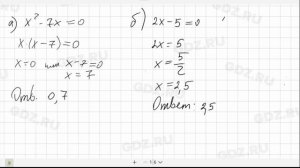 а) x² - 7x = 0
x(x - 7) = 0
x = 0 или x - 7 = 0
x = 7
Отв: 0,7
б) 2x - 5 = 0
2x = 5
x = 5/2
x = 2,5
Ответ: 2,5
GDZ.RU